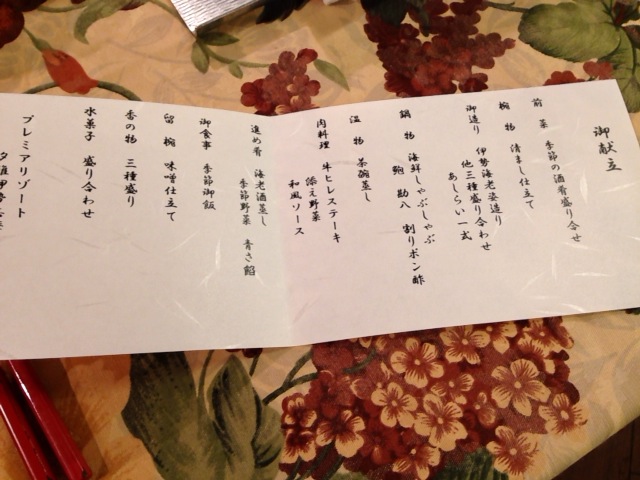 御献立
前菜 季節の酒肴盛り合せ
椀物 清まし仕立て
御造り 伊勢海老姿造り
他三種盛り合わせ
あしらい一式
鍋物 海鮮しゃぶしゃぶ
鮑 勘八 割りポン酢
温物 茶碗蒸し
肉料理 牛ヒレステーキ
添え野菜
和風ソース
進め肴 海老酒蒸し
季節野菜 青さ餡
御食事 季節御飯
留椀 味噌仕立て
香の物 三種盛り
水菓子 盛り合わせ
プレミアリゾート
夕雅伊勢